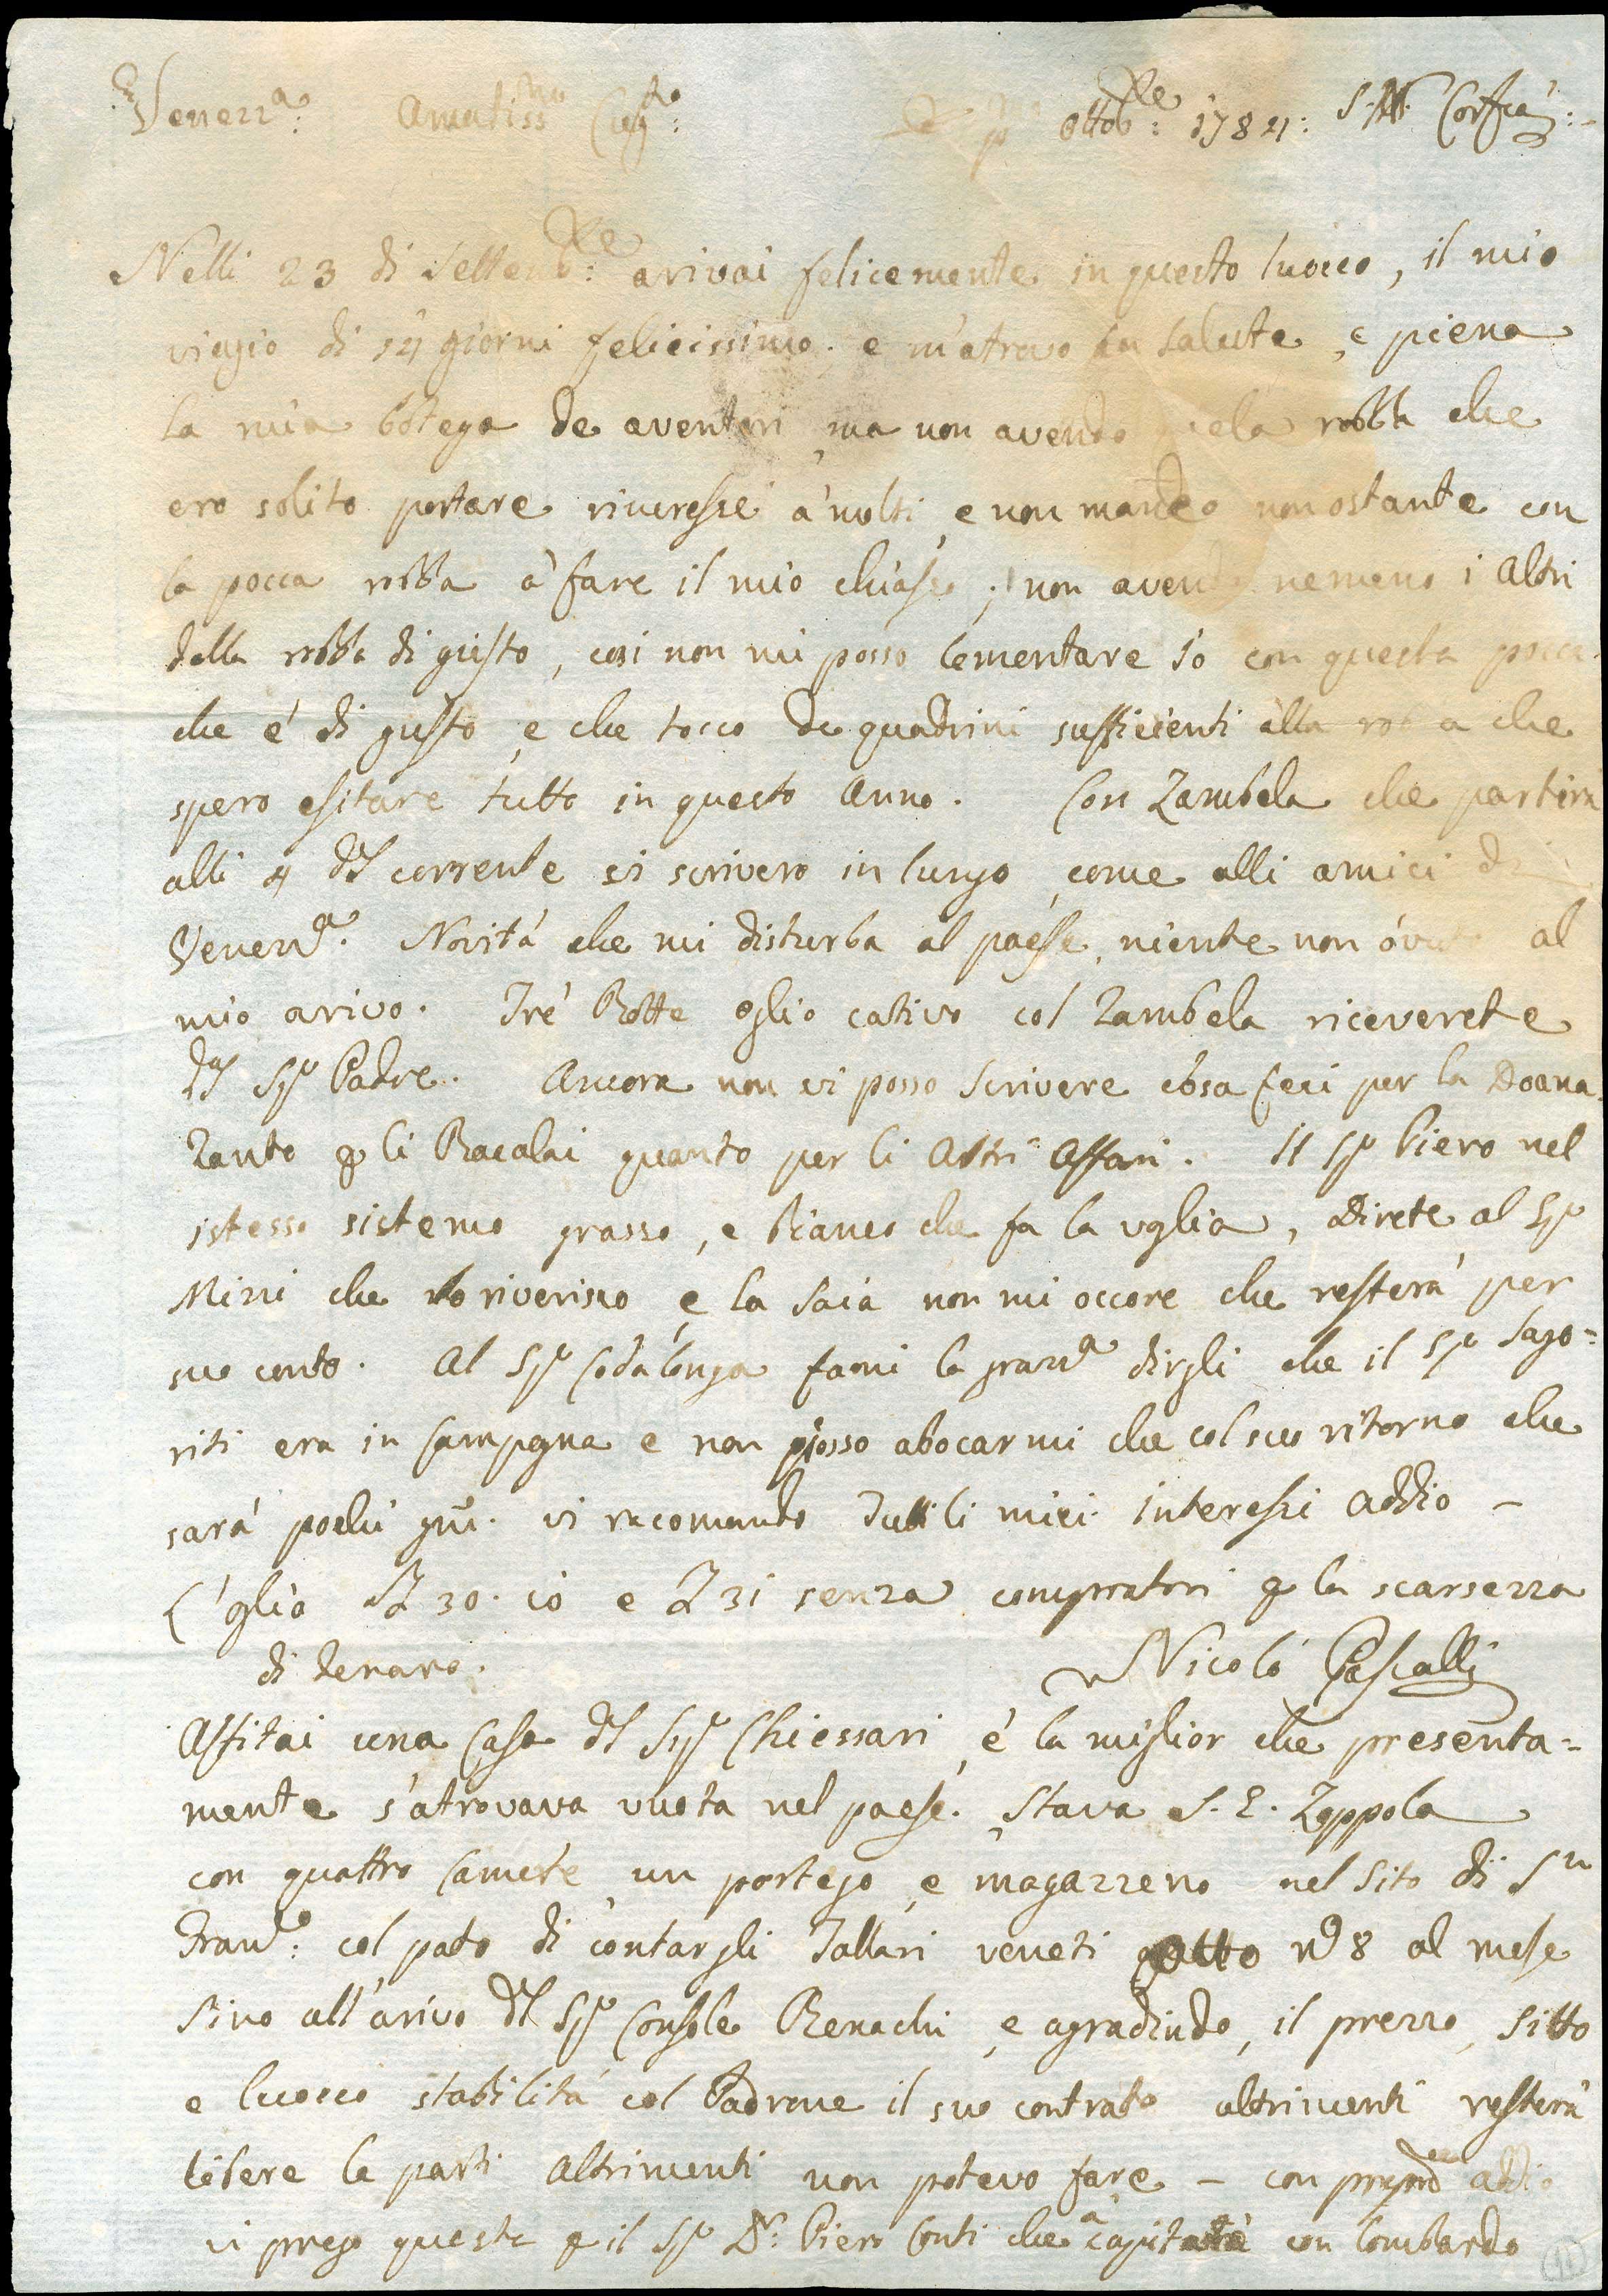 Venez:ª Amatiss:mo Cug:do p:mo Ottob:re 1784: S.N. Corfù:-
Nelli 23 di Setteb:re arivai felicemente in questo luoco, il mio
viagio di 14 giorni felicissimo. e m'atrovo in salute, e piena
la mia botega de aventori, ma non avendo quela robba che
ero solito portare rincresse à molti, e non manco non ostante con
la pocca robba à fare il mio chiasso; non avendo nemeno i Altri
della robba di gusto, cosi non mi posso lementare io con questa pocca
che é di gusto, e che tocco de quadrini sufficienti alla robba che
spero esitare tutto in questo Anno. Con Zambela che partirà
alli 4 del corrente vi scrivero in lungo, come alli amici di
Venez:ª. Novità che mi disturba al paese, niente non óvuto al
mio arivo. Tré Botte oglio cativo col Zambela riceverete
dal Sig:r Padre. Ancora non vi posso scrivere cosa feci per la Doana
Tanto p li Bacalai quanto per li Altri Affari. Il Sig:r Piero nel
istesso sistemo grasso, e bianco che fa la voglia, Direte al Sig:r
Mini che lo riverisco, e la Saia non mi occore che resterà per
suo conto. Al Sig:r Codalonga fami la grazia dirgli che il Sig:r Sago=
riti era in Campagna e non posso abocarmi che col suo ritorno che
sarà pochi gni. vi racomando Tutti li miei interessi addio -
L'oglio Z 30.10 e Z 31 senza compratori p la scarsezza
di denaro.
Nicoló Pascalli
Affitai una Casa del Sig:r Chiessari, é la miglior che presenta=
mente s'atrovava vuota nel paese. Stava S.E. Zoppola
con quattro Camere, un portego, e magazzeno nel Sito di S:n
Fran:co: col pato di contargli Tallari veneti otto N:o 8 al mese
Sino all'arivo del Sig:r Console Benachi, e agradindo, il prezzo, Sitto
e luocco stabilità col Padrone il suo contrato altrimenti resterà
libere le parti Altrimenti non potevo fare - con addio
vi prego questa p il Sig:r D:r: Piero Conti che capitatà con Lombardo